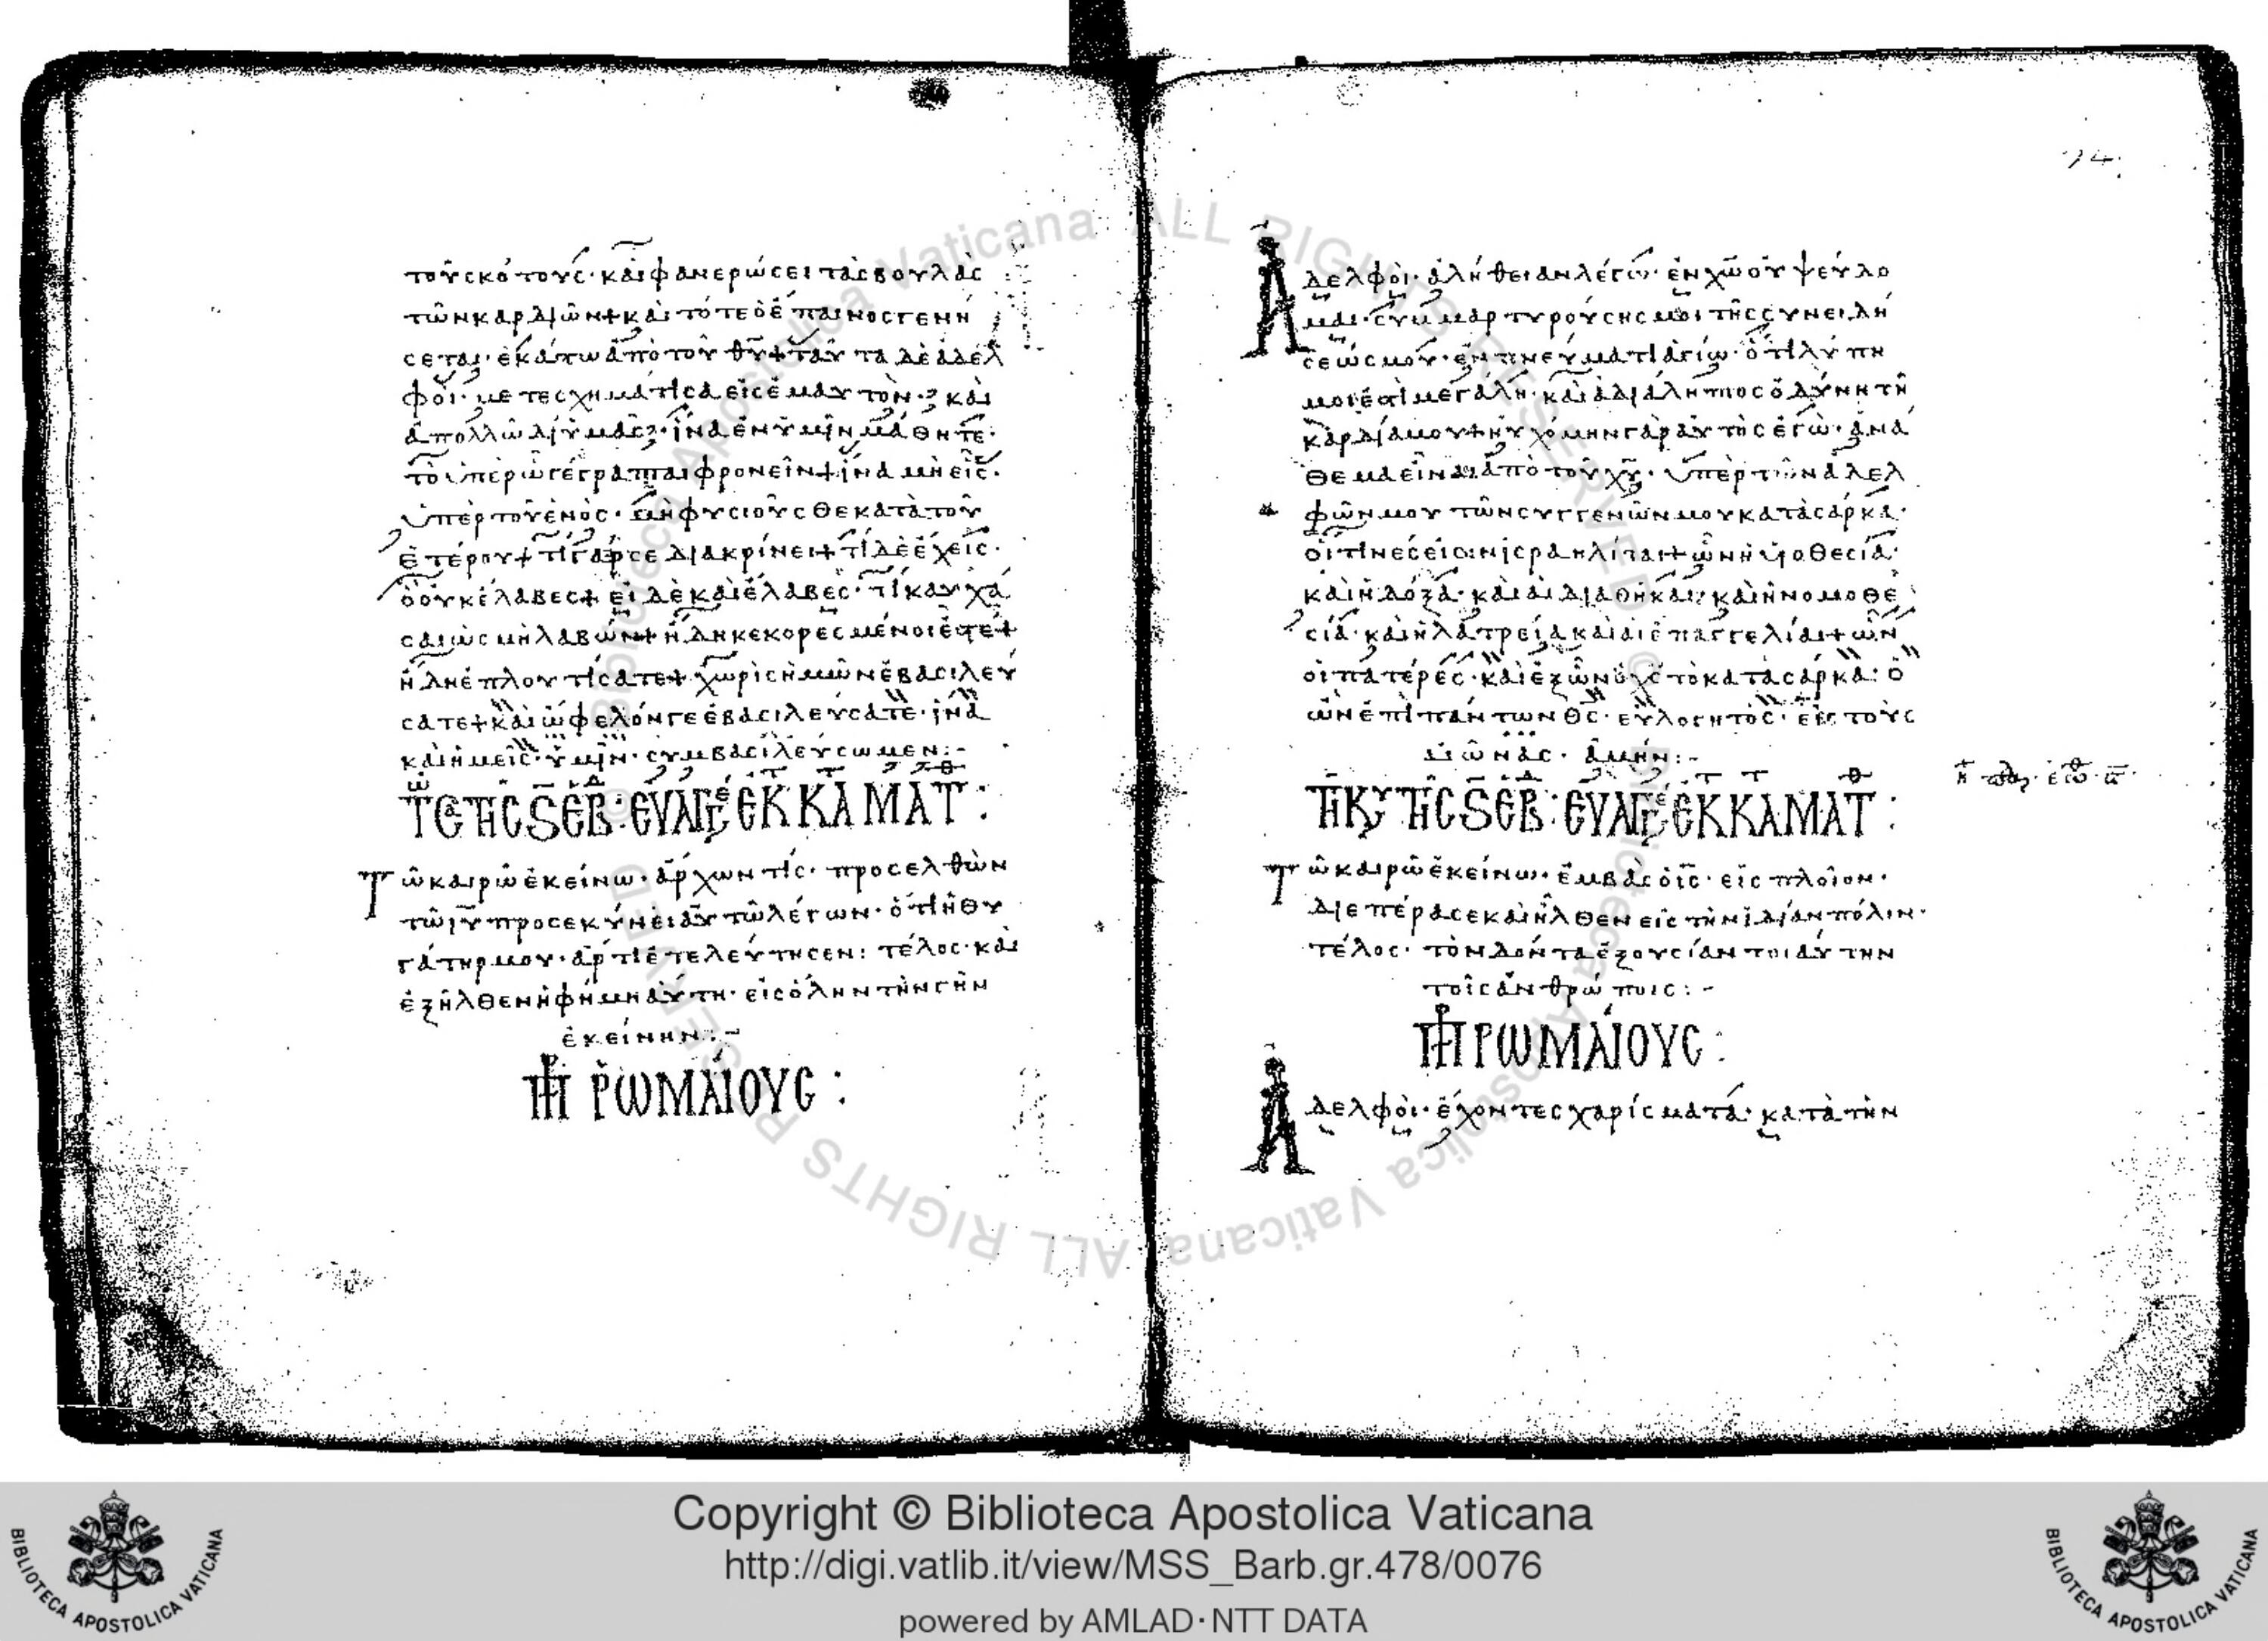 τοῦ σκότους· καὶ φανερώσει τὰς βουλὰς
τῶν καρδιῶν + καὶ τότε ὁ ἔπαινος γενή
σεται· ἑκάστω ἀπὸ τοῦ θῡ + ταῦτα δὲ ἀδελ
φοὶ· μετεσχημάτισα εἰς ἐμαυτὸν· καὶ
ἀπολλὼ δι' ὑμᾶς· ἵνα ἐν ὑμῖν μάθητε·
τὸ ὑπὲρ ὣ γέγραπται φρονεῖν + ἵνα μὴ εἷς·
ὑπὲρ τοῦ ἑνὸς· μὴ φυσιοῦσθε κατὰ τοῦ
ἑτέρου + τίς γάρ σε διακρίνει + τί δὲ ἔχεις·
ὃ οὐκ ἔλαβες + εἰ δὲ καὶ ἔλαβες· τί καυχᾶ
σαι ὡς μὴ λαβών + ἤδη κεκορεσμένοι ἐστέ +
ἤδη ἐπλουτίσατε + χωρὶς ἡμῶν ἐβασιλεύ
σατε + καὶ ὤφελόν γε ἐβασιλεύσατε· ἵνα
καὶ ἡμεῖς· ὑμῖν· συμβασιλεύσωμεν:-
Τῶ καιρῶ ἐκείνω· ἄρχων τίς· προσελθὼν
τῶ ιῡ προσεκύνει αὐτῶ λέγων· ὅτι ἡ θυ
γάτηρ μου· ἄρτι ἐτελεύτησεν: τέλος· καὶ
ἐξῆλθεν ἡ φήμη αὕτη· εἰς ὅλην τὴν γῆν
ἐκείνην:-
ΠΡ ΡΩΜΑΙΟΥΣ:
74
Ἀδελφοὶ· ἀλήθειαν λέγω· ἐν χῶ οὐ ψεύδο
μαι· συμμαρτυρούσης μοι τῆς συνειδή
σεώς μου· ἐν πνεύματι ἁγίω· ὅτι λύπη
μοι ἐστὶ μεγάλη· καὶ ἀδιάληπτος ὀδύνη τῆ
καρδία μου + ηὐχόμην γὰρ αὐτὸς ἐγὼ· ἀνά
θεμα εἶναι ἀπὸ τοῦ χῡ· ὑπὲρ τῶν ἀδελ
φῶν μου τῶν συγγενῶν μου κατὰ σάρκα·
οἵτινές εἰσιν ἰσραηλίται + ὧν ἡ υἱοθεσία·
καὶ ἡ δόξα· καὶ αἱ διαθῆκαι· καὶ ἡ νομοθε
σία· καὶ ἡ λατρεία καὶ αἱ ἐπαγγελίαι + ὧν
οἱ πατέρες· καὶ ἐξ ὧν ὁ χς τὸ κατὰ σάρκα: ὁ
ὢν ἐπὶ πάντων θς· εὐλογητὸς· εἰς τοὺς
αἰῶνας· ἀμήν:-
Τῶ καιρῶ ἐκείνω· ἐμβὰς ὁ ις· εἰς πλοῖον·
διεπέρασε καὶ ἦλθεν εἰς τὴν ἰδίαν πόλιν·
τέλος· τὸν δόντα ἐξουσίαν τοιαύτην
τοῖς ἀνθρώποις:-
ΠΡ ΡΩΜΑΙΟΥΣ:
Ἀδελφοὶ· ἔχοντες χαρίσματα· κατὰ τὴν
Copyright © Biblioteca Apostolica Vaticana
http://digi.vatlib.it/view/MSS_Barb.gr.478/0076
powered by AMLAD·NTT DATA
BIBLIOTECA APOSTOLICA VATICANA
BIBLIOTECA APOSTOLICA VATICANA